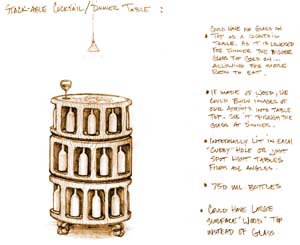 STACK-ABLE COCKTAIL/DINNER TABLE :
• COULD HAVE NO GLASS ON
TOP AS A COCKTAIL
TABLE. AS IT IS LOWERED
FOR DINNER THE BIGGER
GLASS TOP GOES ON...
ALLOWING FOR MORE
ROOM TO EAT.
• IF MADE OF WOOD, WE
COULD BURN IMAGES OF
OUR ARTISTS INTO TABLE
TOP. SEE IT THROUGH THE
GLASS AT DINNER.
• INTERNALLY LIT IN EACH
"CUBBY" HOLE OR JUST
SPOT LIGHT TABLES
FROM ALL ANGLES.
• 750 ML BOTTLES
• COULD HAVE LARGE
SURFACE "WOOD" TOP
INSTEAD OF GLASS